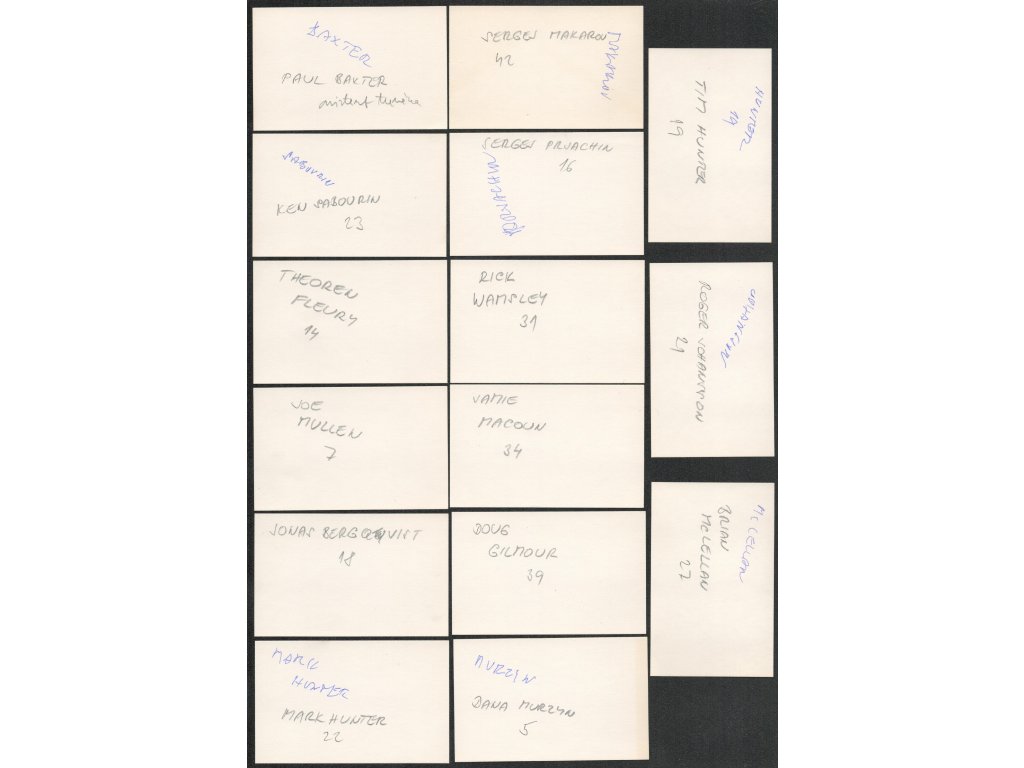 BAXTER
PAUL BAXTER
SABOURIN
KEN SABOURIN
23
THEOREN
FLEURY
14
JOE
MULLEN
7
JONAS BERGQVIST
18
MARK
HUNTER
MARK HUNTER
22
SERGEJ MAKAROV
42
MAKAROV
SERGEJ PRJACHIN
16
RICK
WAMSLEY
31
JAMIE
MACOUN
34
DOUG
GILMOUR
39
MURZYN
DANA MURZYN
5
HUNTER
19
TIM HUNTER
19
ROGER JOHANSSON
21
MCCLELLAN
BRIAN
MCLELLAN
27